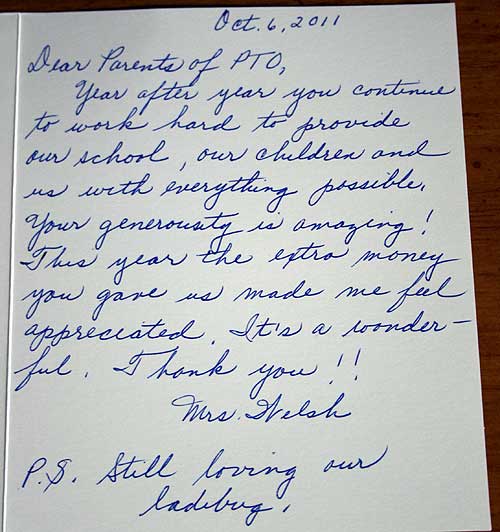 Oct. 6, 2011
Dear Parents of PTO,
Year after year you continue
to work hard to provide
our school, our children and
us with everything possible.
Your generousty is amazing!
This year the extra money
you gave us made me feel
appreciated. It's a wonder-
ful. Thank you!!
Mrs. Welsh
P.S. Still loving our
ladibug.